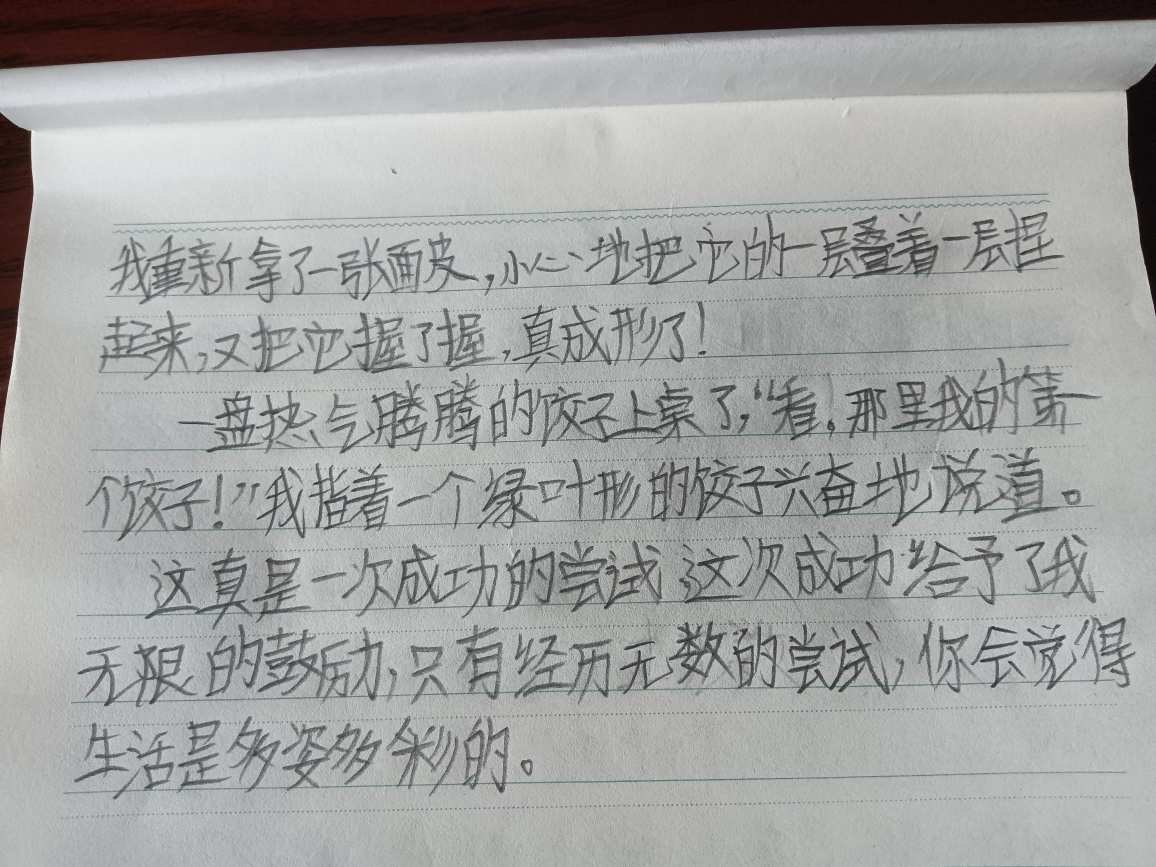 我重新拿了一张面皮,小心地把它的一层叠着一层捏
起来,又把它握了握,真成形了!
一盘热气腾腾的饺子上桌了,“看。那里我的第一
个饺子!”我指着一个绿叶形的饺子兴奋地说道。
这真是一次成功的尝试,这次成功给予了我
无限的鼓励,只有经历无数的尝试,你会觉得
生活是多姿多彩的。